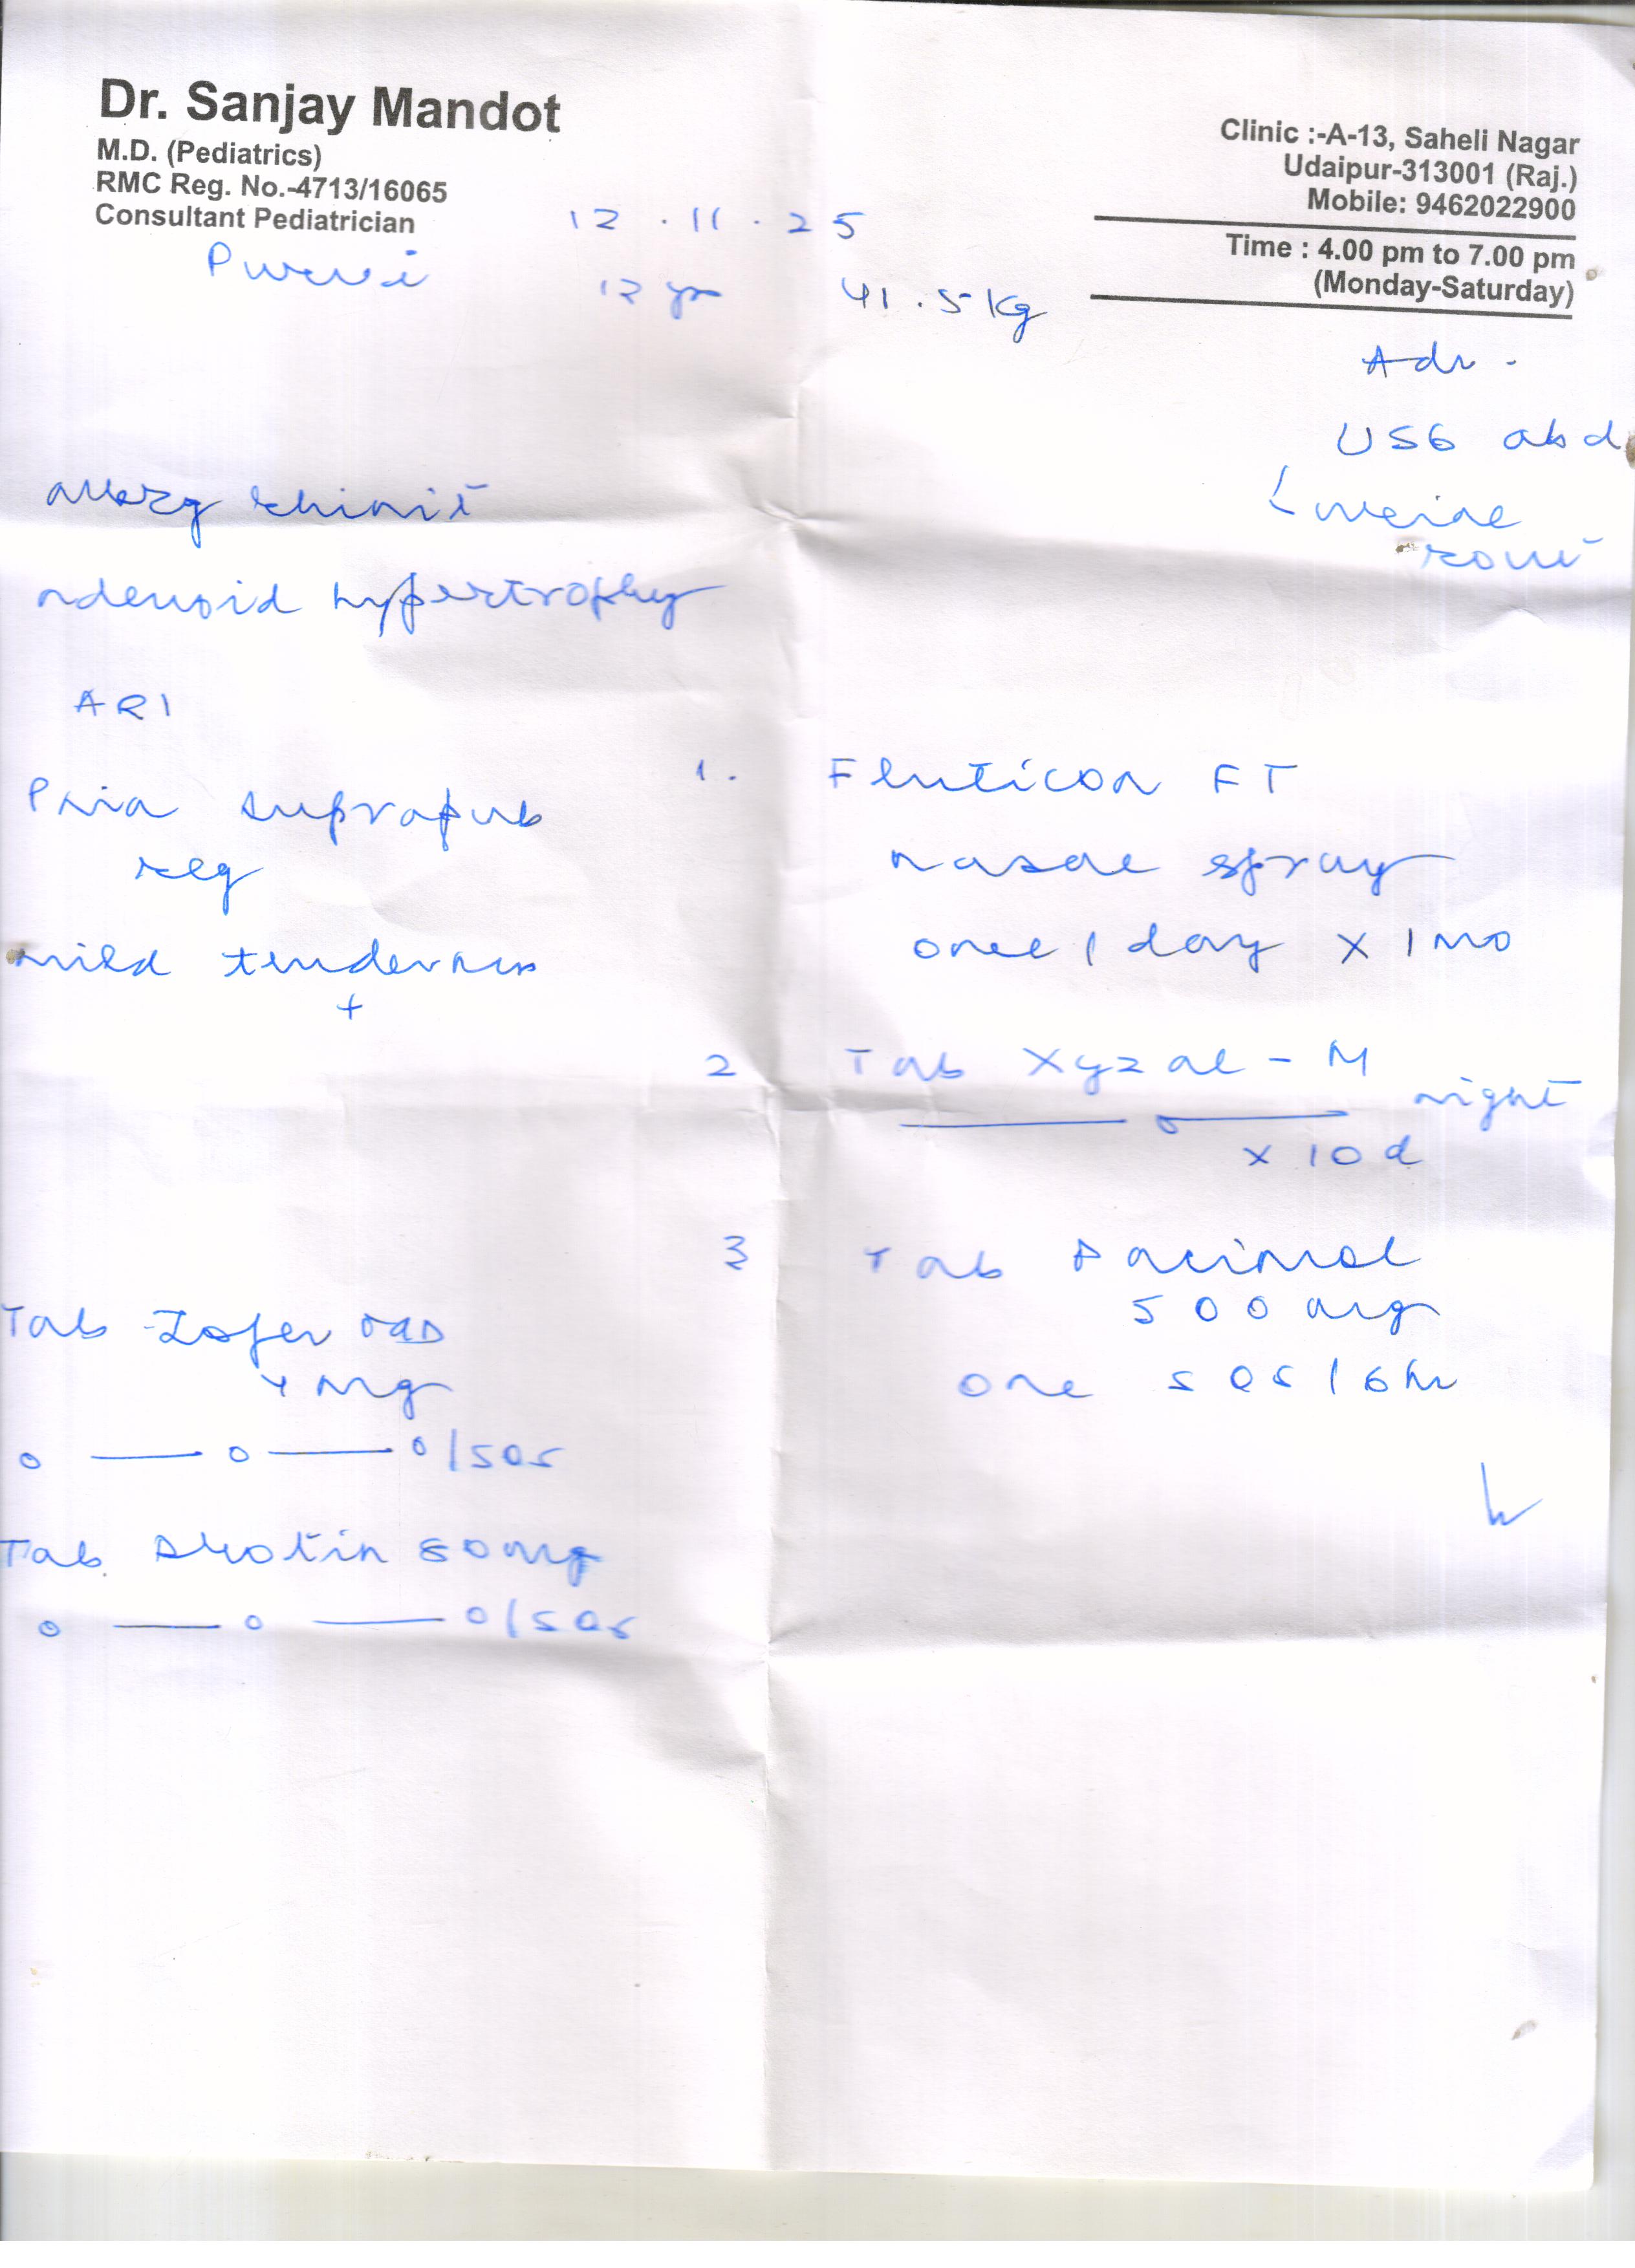 Dr. Sanjay Mandot
M.D. (Pediatrics)
RMC Reg. No.-4713/16065
Consultant Pediatrician
Clinic :-A-13, Saheli Nagar
Udaipur-313001 (Raj.)
Mobile: 9462022900
Time : 4.00 pm to 7.00 pm
(Monday-Saturday)
12 . 11 . 25
41 . 5 kg
Adv -
USG abd
rout
allerg rhinit
adenoid hypertrophy
ARI
Pain suprapub
reg
mild tenderness
+
1. Fluticon FT
nasal spray
once / day x 1 mo
2 Tab Xyzal - M
night
x 10 d
3 Tab
500 mg
one sos / 6 hr
Tab Zofer
4 mg
o — o — o / sos
Tab
o — o — o / sos